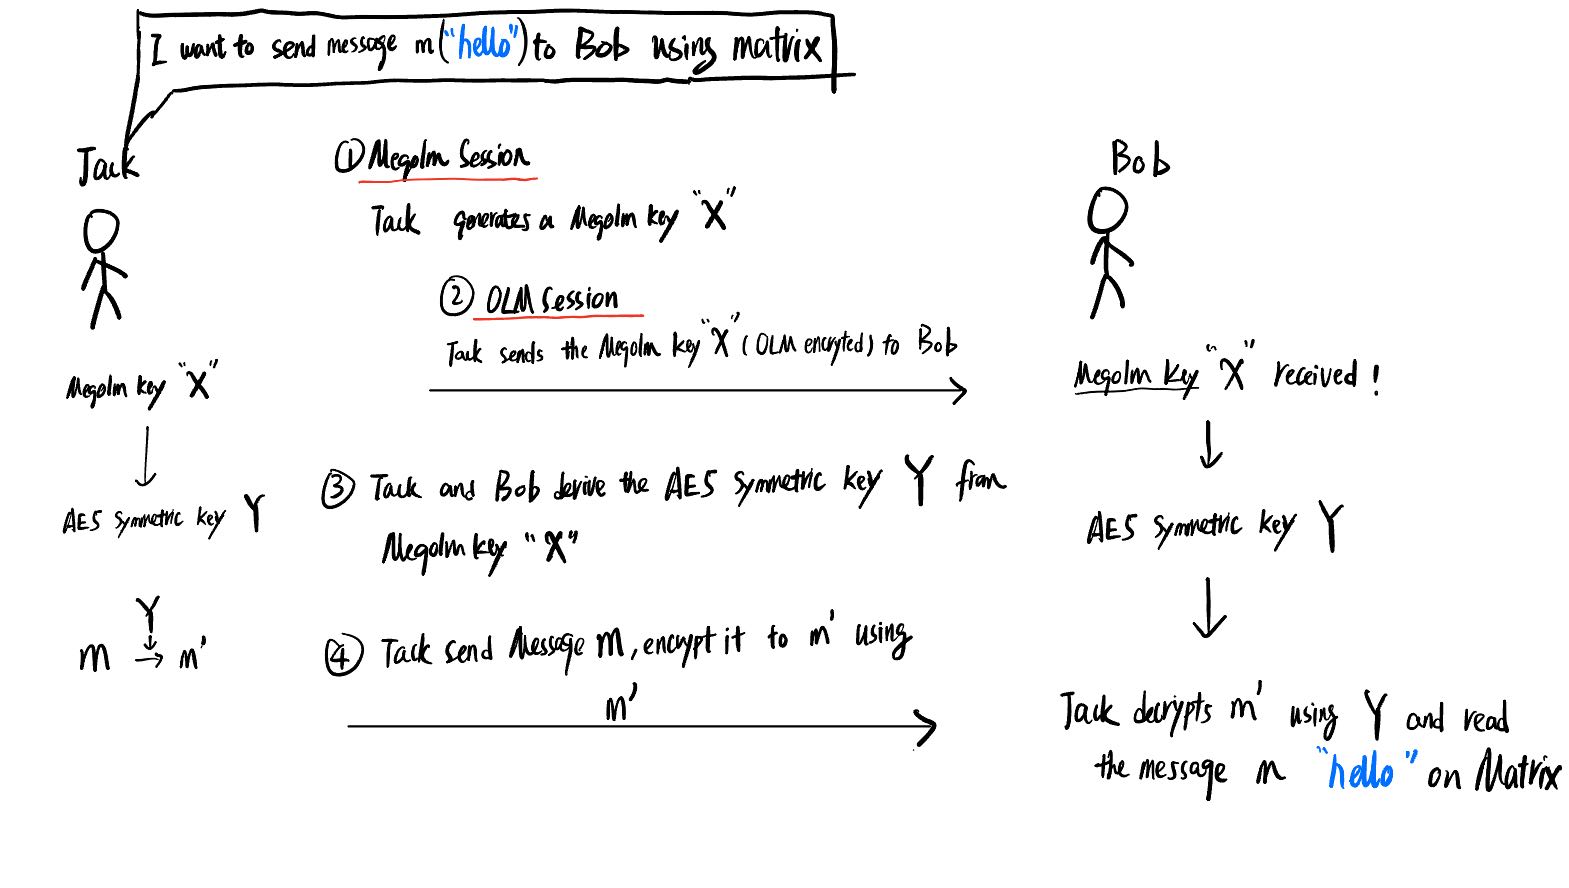 I want to send message m("hello") to Bob using matrix
Jack
① Megolm Session
Bob
Jack generates a Megolm key "X"
② OLM Session
Jack sends the Megolm key "X" (OLM encryted) to Bob
Megolm key "X"
Megolm key "X" received!
③ Jack and Bob derive the AES symmetric key Y from
Megolm key "X"
AES symmetric key Y
AES symmetric key Y
Y
m → m'
④ Jack send Message m, encrypt it to m' using
m'
Jack decrypts m' using Y and read
the message m "hello" on Matrix